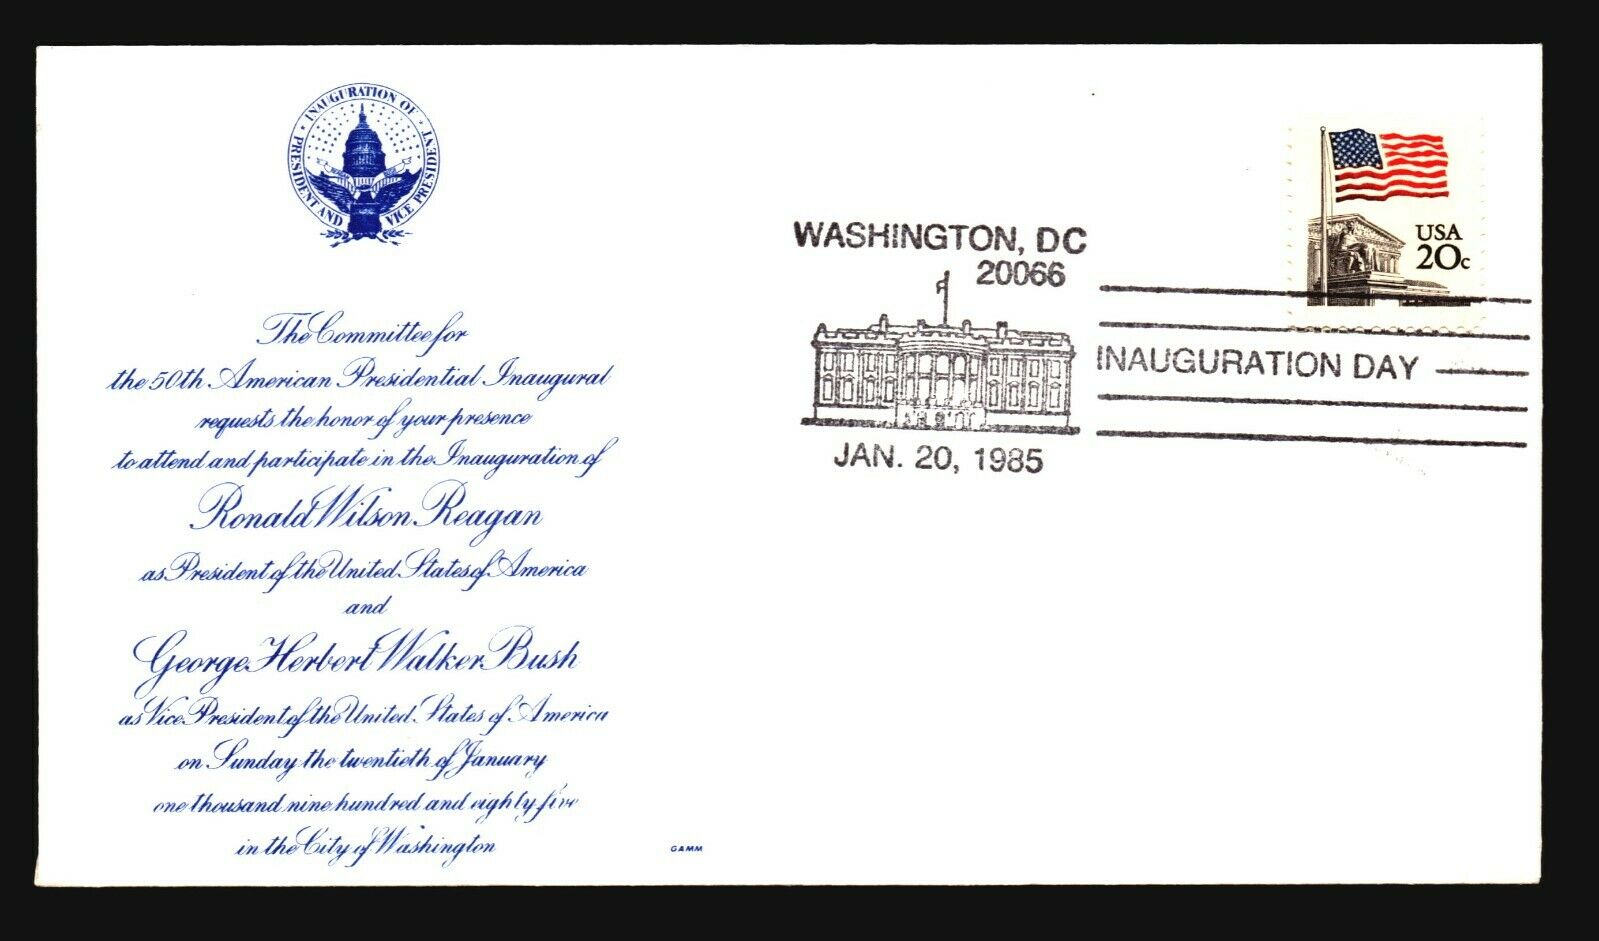 INAUGURATION OF
PRESIDENT AND VICE PRESIDENT
The Committee for
the 50th American Presidential Inaugural
requests the honor of your presence
to attend and participate in the Inauguration of
Ronald Wilson Reagan
as President of the United States of America
and
George Herbert Walker Bush
as Vice President of the United States of America
on Sunday the twentieth of January
one thousand nine hundred and eighty five
in the City of Washington
GAMM
WASHINGTON, DC
20066
INAUGURATION DAY
JAN. 20, 1985
USA
20c